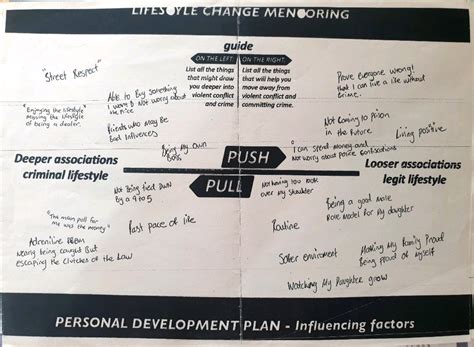 LIFESTYLE CHANGE MENTORING
guide
ON THE LEFT:
List all the things
that might draw
you deeper into
violent conflict
and crime
ON THE RIGHT:
List all the things
that will help you
move away from
violent conflict and
committing crime.
"Street Respect"
"Enjoying the lifestyle"
Moving the lifestyle
of being a dealer.
Able to Buy something
I want & Not worry about
the Price
Friends who May Be
Bad Influences
Being My Own
Boss
Prove everyone wrong!
that I can live a life without
Crime.
Not Coming to Prison
in the future
Living positive
I can Spend money and
Not worry about Police Confiscations
PUSH
PULL
Deeper associations
criminal lifestyle
Looser associations
legit lifestyle
Not Being tied Down
By a 9 to 5
"The main pull for
me was the money"
Fast pace of life
Adrenline
Nearly being Caught But
escaping the Clutches of the Law
Not having to look
over My Shoulder
Being a good Male
Role Model for My daughter
Routine
Safer enviroment
Making My Family Proud
Being proud of myself
Watching My Daughter grow
PERSONAL DEVELOPMENT PLAN - Influencing factors